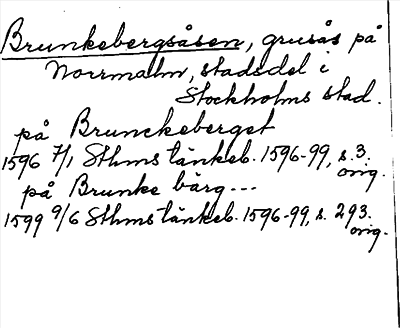 Brunkebergsåsen, grusås på
Norrmalm, stadsdel i
Stockholms stad.
på Brunckeberget
1596 7/1 Sthms tänkeb. 1596-99, s. 3.
orig.
på Brunke bärg...
1599 9/6 Sthms tänkeb. 1596-99, s. 293.
orig.